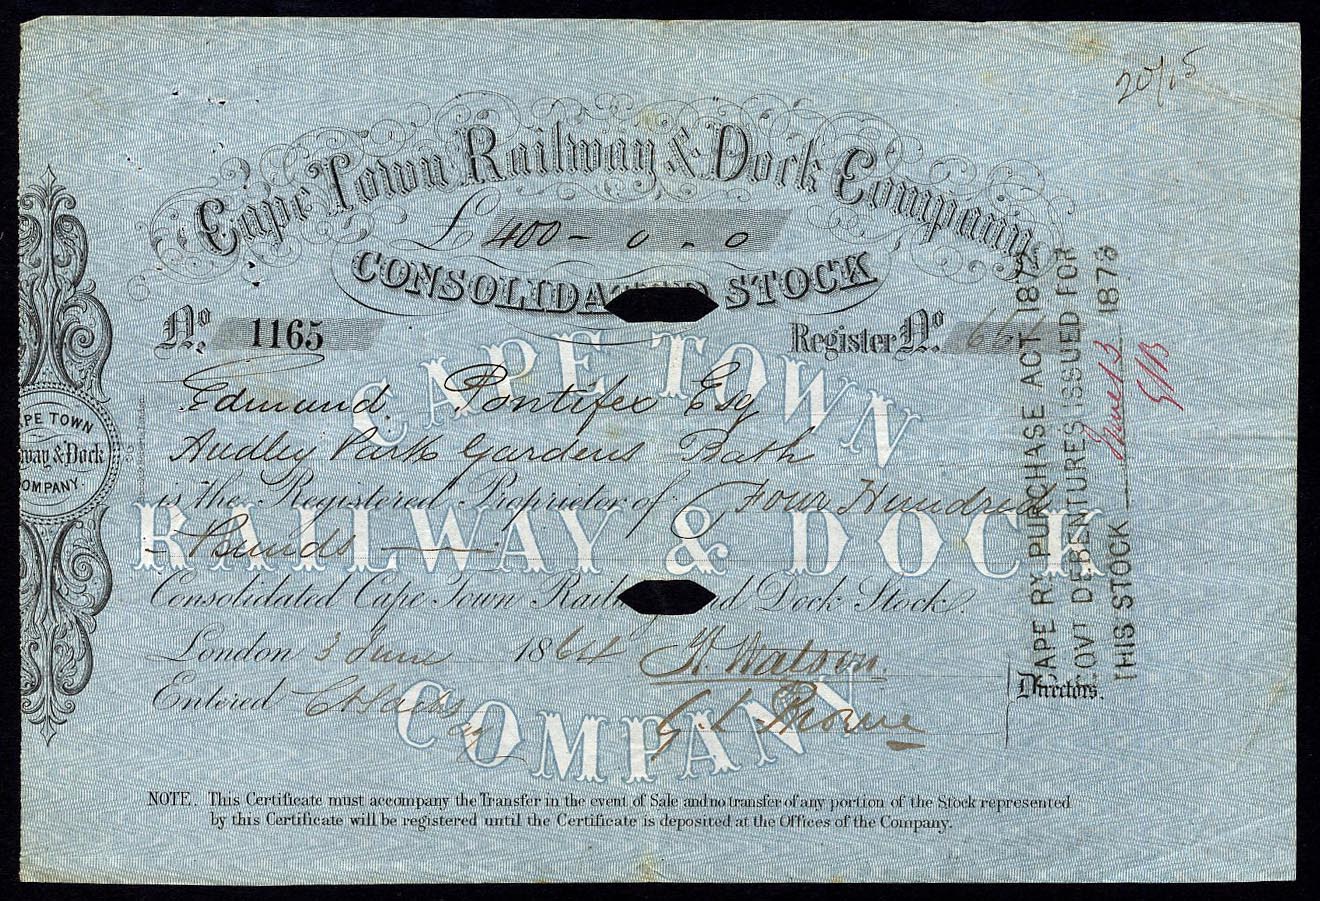 20/15
Cape Town Railway & Dock Company
£ 400 - 0 - 0
CONSOLIDATED STOCK
No. 1165
Register No.
CAPE TOWN
Edmund Pontifex Esq
Audley Park Gardens Bath
is the Registered Proprietor of Four Hundred
- Pounds -
RAILWAY & DOCK
Consolidated Cape Town Railway and Dock Stock.
London 3 June 1864 W. Watson
Entered
Directors.
COMPANY
NOTE. This Certificate must accompany the Transfer in the event of Sale and no transfer of any portion of the Stock represented
by this Certificate will be registered until the Certificate is deposited at the Offices of the Company.
APE TOWN
way & Dock
OMPANY.
CAPE RY PURCHASE ACT 1872
GOVT DEBENTURES ISSUED FOR
THIS STOCK June 13 1873